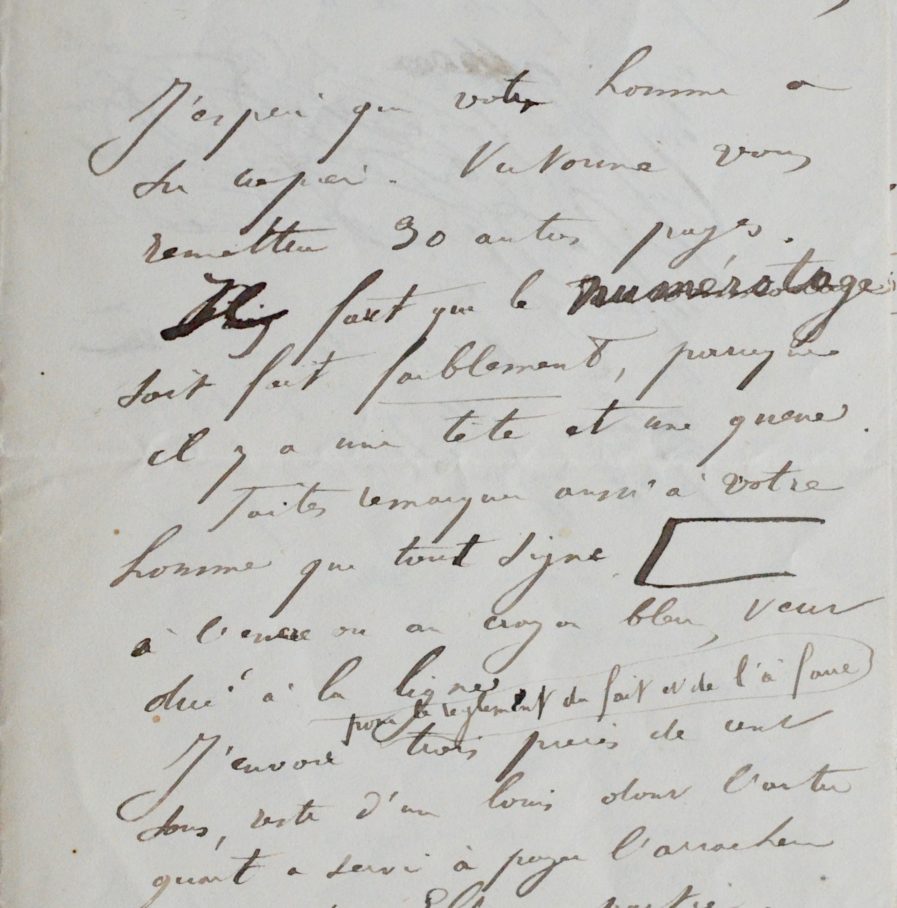 J'espère que votre homme a
du papier. Victorine vous
remettra 30 autres pages.
Il faut que le numérotage
soit fait faiblement, puisque
il y a une tête et une queue.
Faites remarquer aussi à votre
homme que tout signe
à l'encre ou au crayon bleu, veut
dire à la ligne
pour le règlement du fait et de l'à faire
J'envoie trois pièces de cent
sous, reste d'un louis dont l'autre
quart a servi à payer l'arracheur